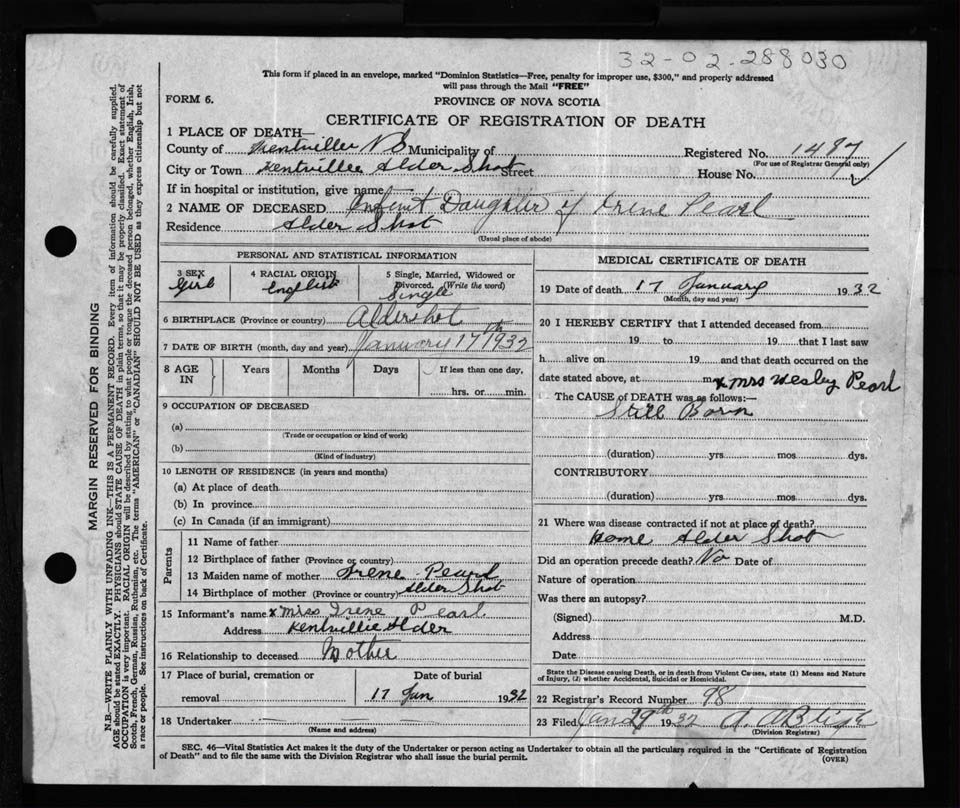 32-02-288030
This form if placed in an envelope, marked "Dominion Statistics—Free, penalty for improper use, $300," and properly addressed
will pass through the Mail "FREE"
FORM 6.
PROVINCE OF NOVA SCOTIA
CERTIFICATE OF REGISTRATION OF DEATH
1 PLACE OF DEATH—
County of Kentville N S Municipality of
Registered No. 1487
(For use of Registrar General only)
City or Town Kentville Alder Shot Street
House No.
If in hospital or institution, give name
2 NAME OF DECEASED Infent Daughter of Irene Pearl
Residence Alder Shot
(Usual place of abode)
PERSONAL AND STATISTICAL INFORMATION
3 SEX
Girl
4 RACIAL ORIGIN
English
5 Single, Married, Widowed or
Divorced. (Write the word)
Single
6 BIRTHPLACE (Province or country) Aldershot
7 DATE OF BIRTH (month, day and year) January 17th 1932
8 AGE
IN
Years
Months
Days
If less than one day,
hrs. or min.
9 OCCUPATION OF DECEASED
(a)
(Trade or occupation or kind of work)
(b)
(Kind of industry)
10 LENGTH OF RESIDENCE (in years and months)
(a) At place of death
(b) In province
(c) In Canada (if an immigrant)
Parents
11 Name of father
12 Birthplace of father (Province or country)
13 Maiden name of mother Irene Pearl
14 Birthplace of mother (Province or country) Alder Shot
15 Informant's name x Miss Irene Pearl
Address Kentvillie Alder
16 Relationship to deceased Mother
17 Place of burial, cremation or
removal
Date of burial
17 Jan 1932
18 Undertaker
(Name and address)
MEDICAL CERTIFICATE OF DEATH
19 Date of death 17 January 1932
(Month, day and year)
20 I HEREBY CERTIFY that I attended deceased from
19 to 19 that I last saw
h alive on 19 and that death occurred on the
date stated above, at m. x Mrs Wesley Pearl
The CAUSE of DEATH was as follows:—
Still Born
(duration) yrs mos dys.
CONTRIBUTORY
(duration) yrs mos dys.
21 Where was disease contracted if not at place of death?
home Alder Shot
Did an operation precede death? No Date of
Nature of operation
Was there an autopsy?
(Signed) M.D.
Address
Date
State the Disease causing Death, or in death from Violent Causes, state (1) Means and Nature
of Injury, (2) whether Accidental, Suicidal or Homicidal.
22 Registrar's Record Number 98
23 Filed Jan 29th 1932
(Division Registrar)
SEC. 46—Vital Statistics Act makes it the duty of the Undertaker or person acting as Undertaker to obtain all the particulars required in the "Certificate of Registration
of Death" and to file the same with the Division Registrar who shall issue the burial permit.
(OVER)
MARGIN RESERVED FOR BINDING
N.B.—WRITE PLAINLY WITH UNFADING INK—THIS IS A PERMANENT RECORD. Every item of information should be carefully supplied.
AGE should be stated EXACTLY. PHYSICIANS should STATE CAUSE OF DEATH in plain terms, so that it may be properly classified. Exact statement of
OCCUPATION is very important. RACIAL ORIGIN will be described by stating to what people or tongue the deceased person belonged, whether English, Irish,
Scotch, French, German, Russian, Ruthenian, etc. The terms "AMERICAN" or "CANADIAN" SHOULD NOT BE USED as they express citizenship but not
a race or people. See instructions on back of Certificate.